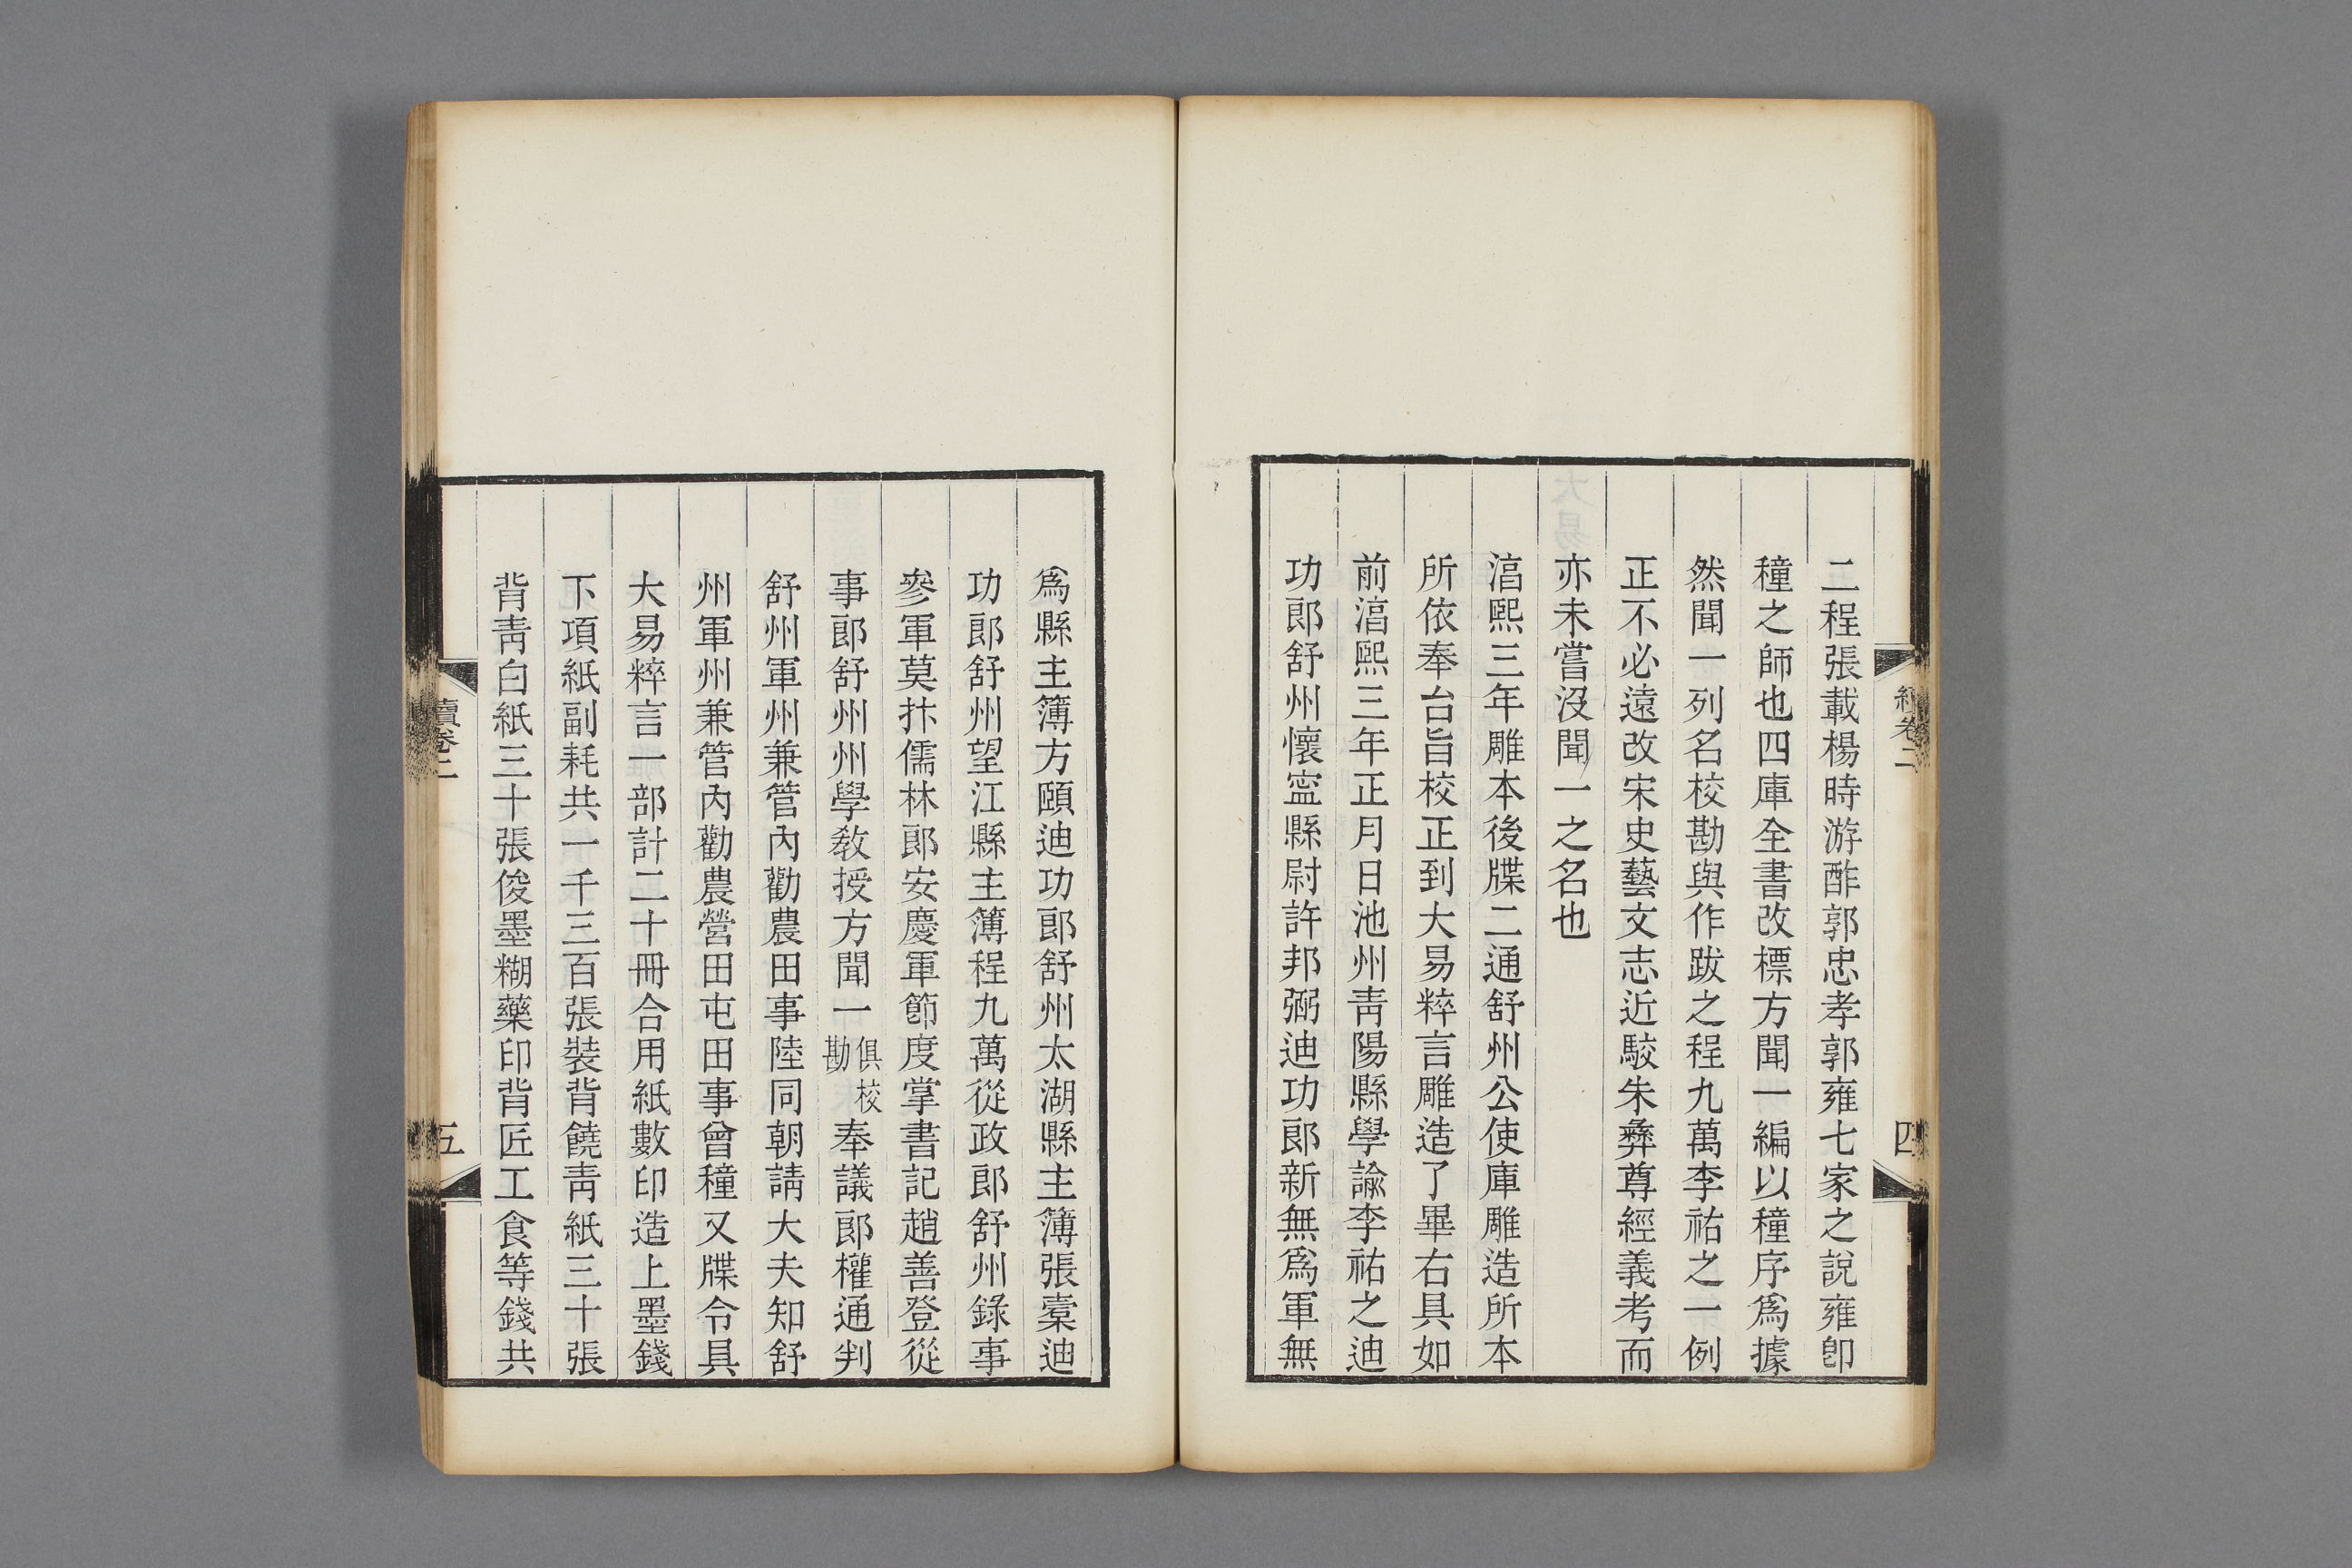 二程張載楊時游酢郭忠孝郭雍七家之說雍卽
穜之師也四庫全書改標方聞一編以穜序爲據
然聞一列名校勘與作跋之程九萬李祐之一例
正不必遠改宋史藝文志近駮朱彝尊經義考而
亦未嘗沒聞一之名也
湻熙三年雕本後牒二通舒州公使庫雕造所本
所依奉台旨校正到大易粹言雕造了畢右具如
前湻熙三年正月日池州靑陽縣學諭李祐之迪
功郞舒州懷寍縣尉許邦弼迪功郞新無爲軍無
四
爲縣主簿方頤迪功郞舒州太湖縣主簿張槖迪
功郞舒州望江縣主簿程九萬從政郞舒州錄事
參軍莫抃儒林郞安慶軍節度掌書記趙善登從
事郞舒州州學敎授方聞一俱校勘奉議郞權通判
舒州軍州兼管內勸農田事陸同朝請大夫知舒
州軍州兼管內勸農營田屯田事曾穜又牒令具
大易粹言一部計二十冊合用紙數印造上墨錢
下項紙副耗共一千三百張裝背饒靑紙三十張
背靑白紙三十張俊墨糊藥印背匠工食等錢共
續卷二
五